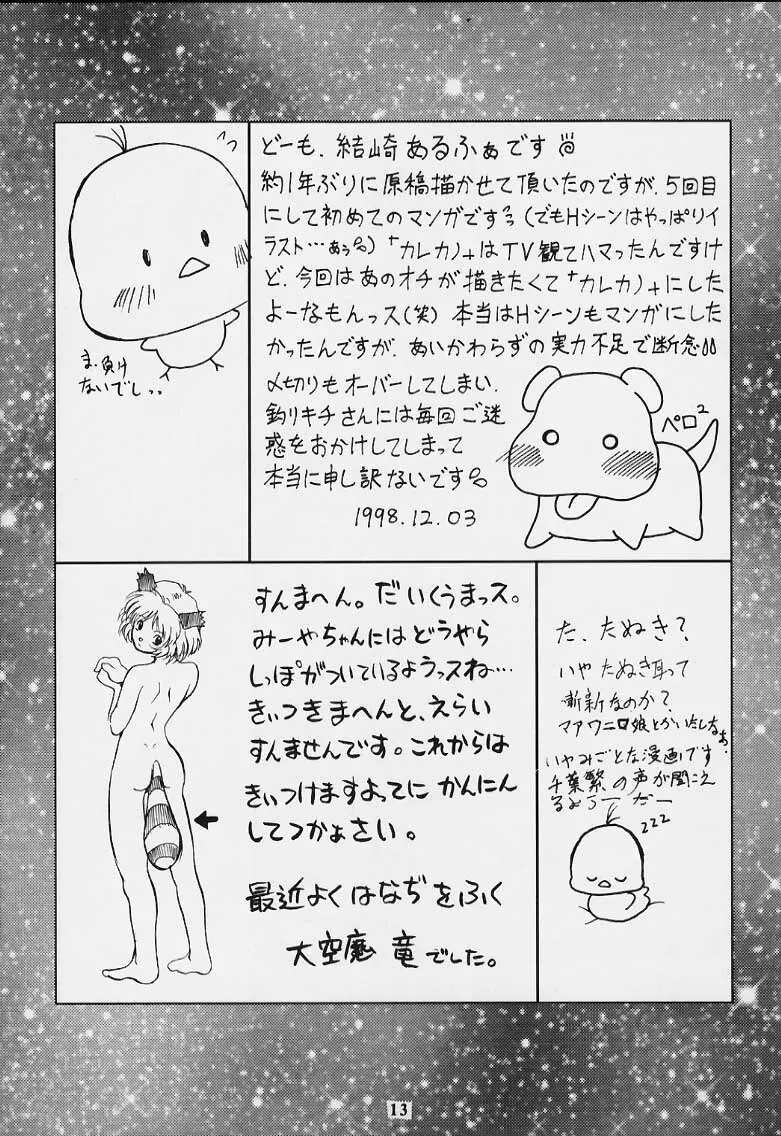 どーも、結崎あるふぁです
約1年ぶりに原稿描かせて頂いたのですが、5回目
にして初めてのマンガですっ(でもHシーンはやっぱりイ
ラスト…あぅ)「カレカノ」はTV観てハマったんですけ
ど、今回はあのオチが描きたくて「カレカノ」にした
よーなもんっス(笑) 本当はHシーンもマンガにした
かったんですが、あいかわらずの実力不足で断念
〆切りもオーバーしてしまい、
釣りキチさんには毎回ご迷
惑をおかけしてしまって
本当に申し訳ないです
1998.12.03
ま、負け
ないでし
ペロ2
すんまへん。だいくうまっス。
みーやちゃんにはどうやら
しっぽがついているようっスね…
きぃつきまへんと、えらい
すんませんです。これからは
きぃつけますよってに かんにん
してつかぁさい。
最近よくはなぢをふく
大空魔 竜でした。
た、たぬき？
いや たぬき耳って
斬新なのか？
マァワニ口娘とかいたしなぁ、
いやみごとな漫画です
千葉繁の声が聞こえ
るよう
zzz
13